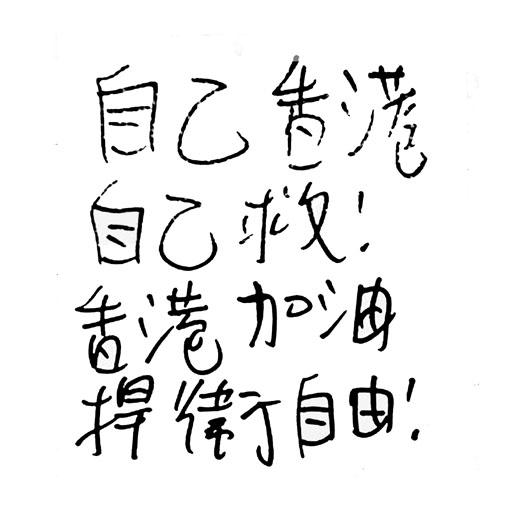 自己香港
自己救!
香港加油
捍衛自由!